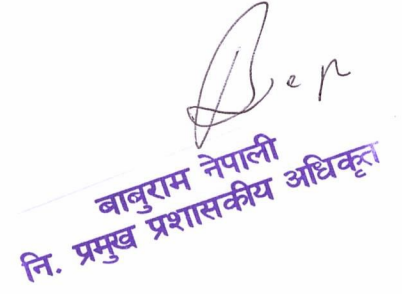 बाबुराम नेपाली
नि. प्रमुख प्रशासकीय अधिकृत